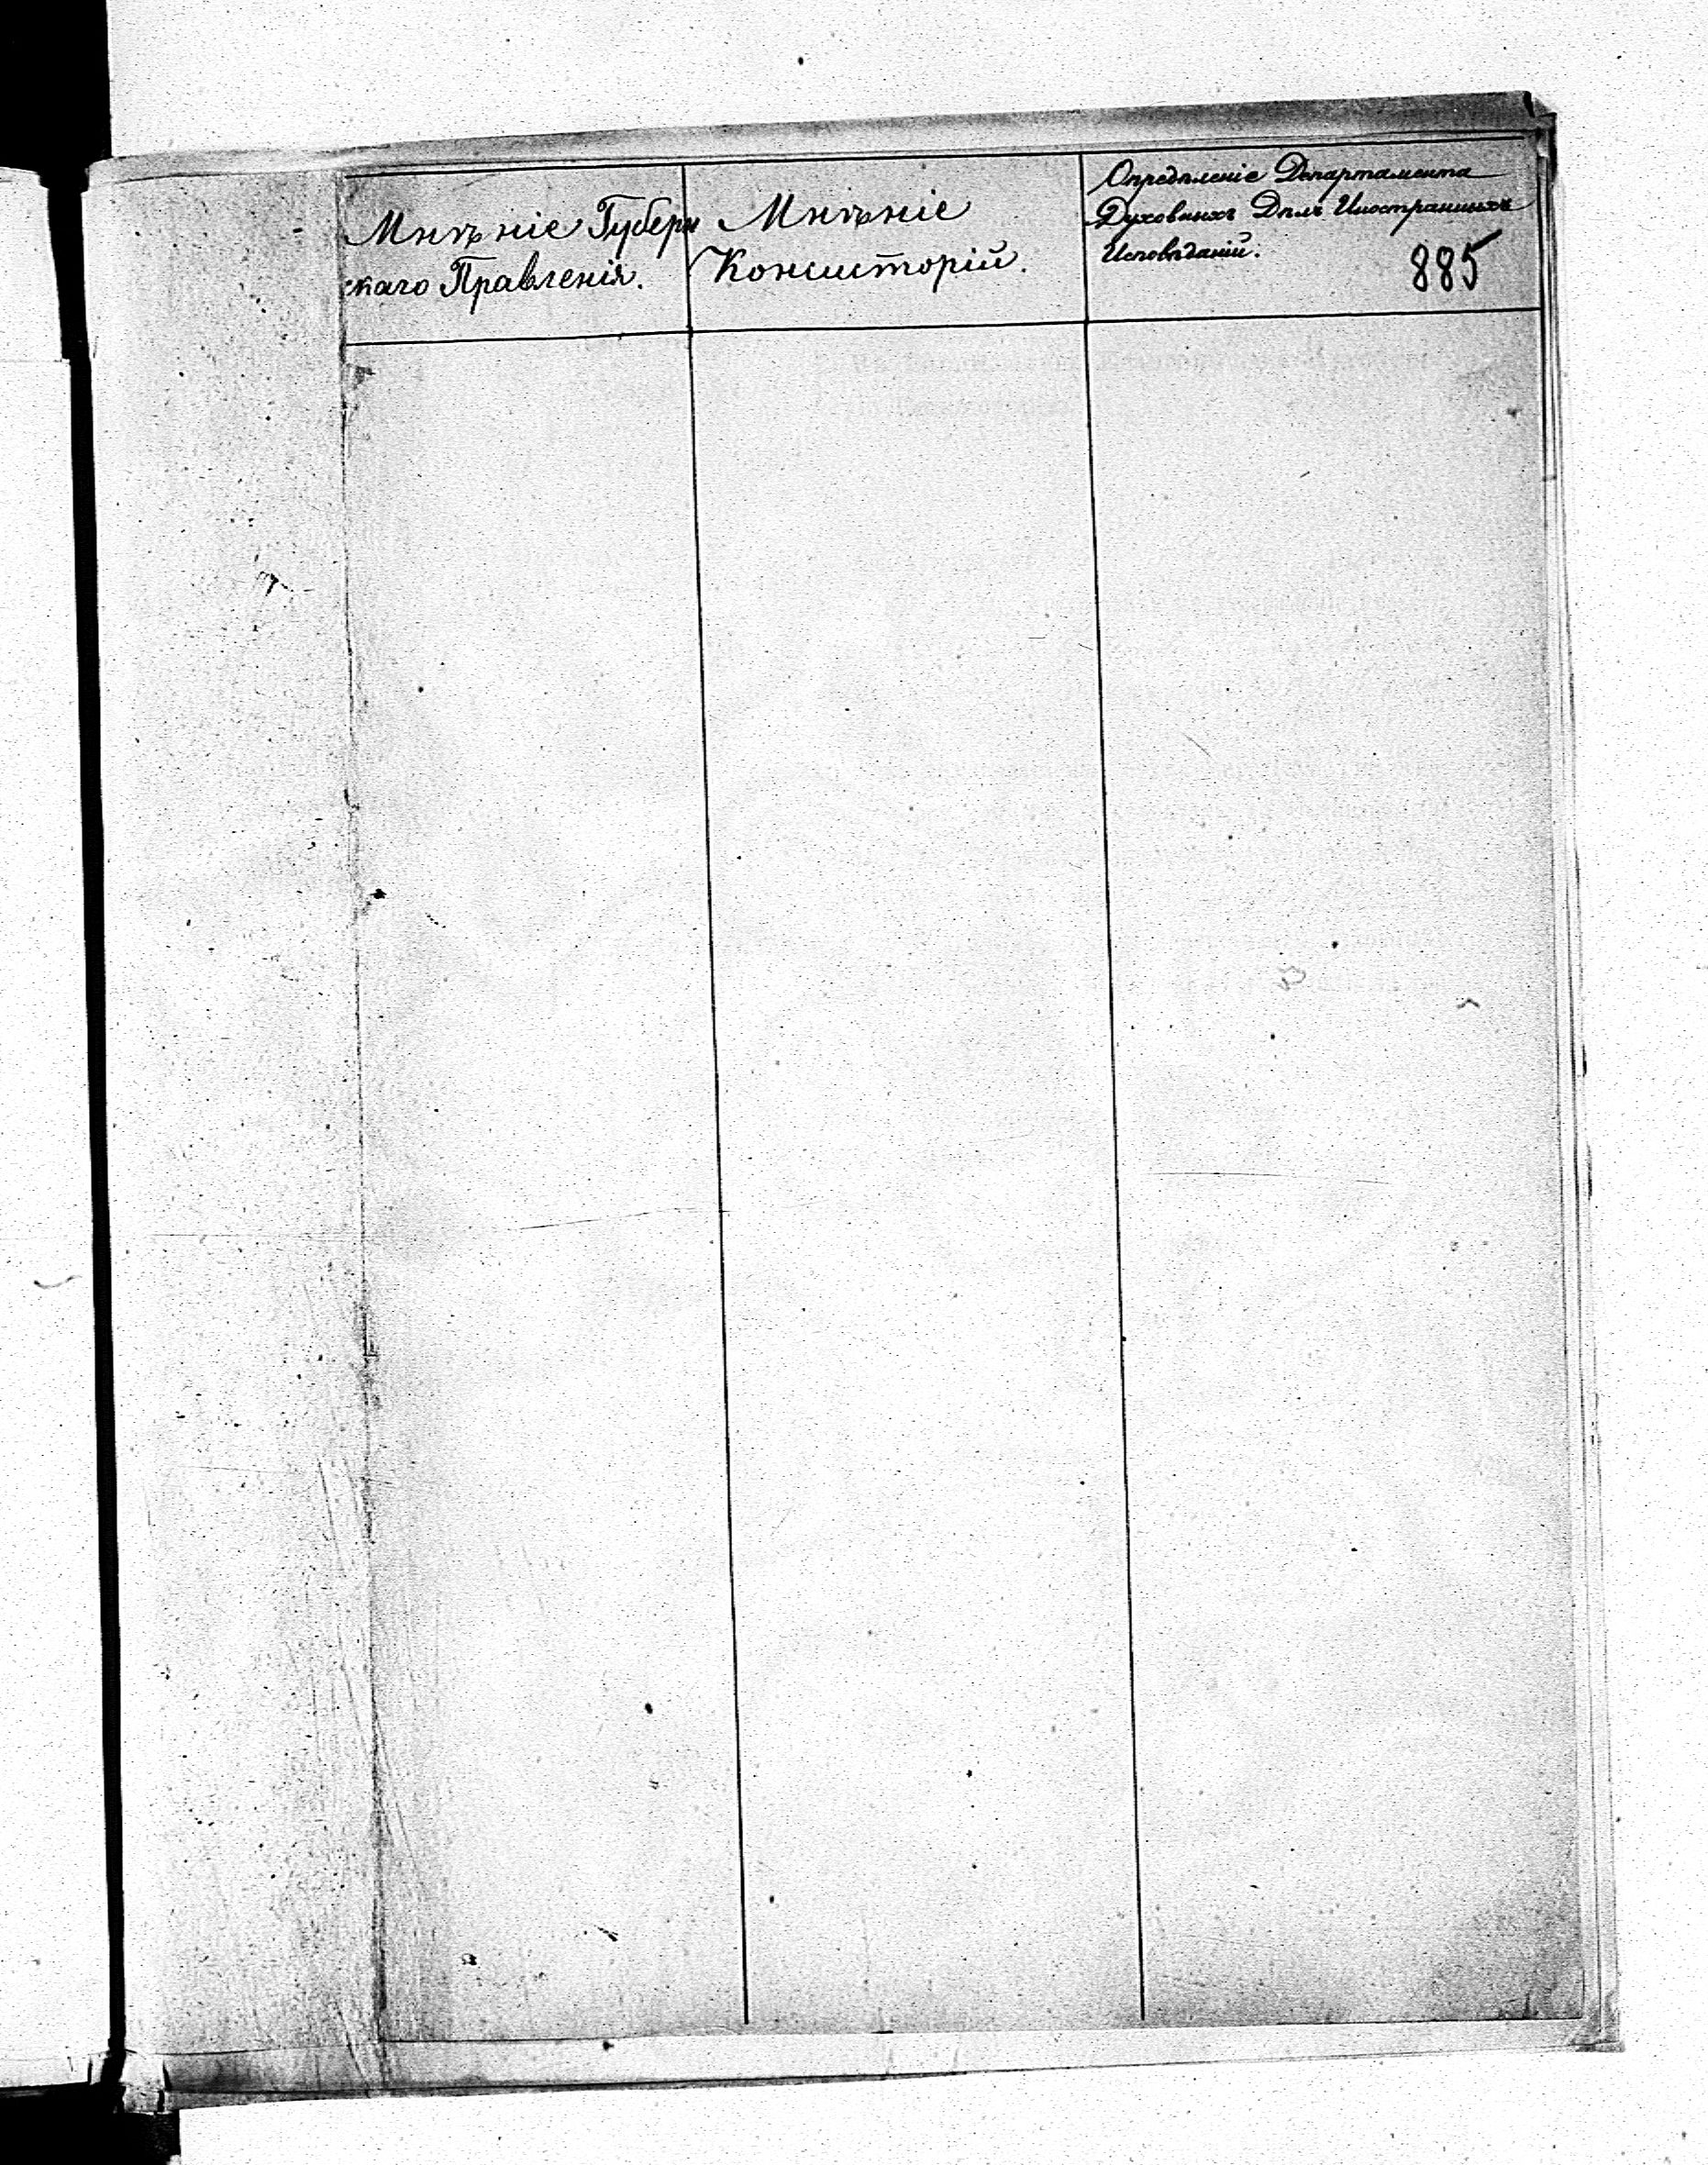 Мнѣніе Губерн
скаго Правленія.
Мнѣніе
Консисторій.
Опредѣленіе Департамента
Духовныхъ Дѣлъ Иностранныхъ
Исповѣданій.
885